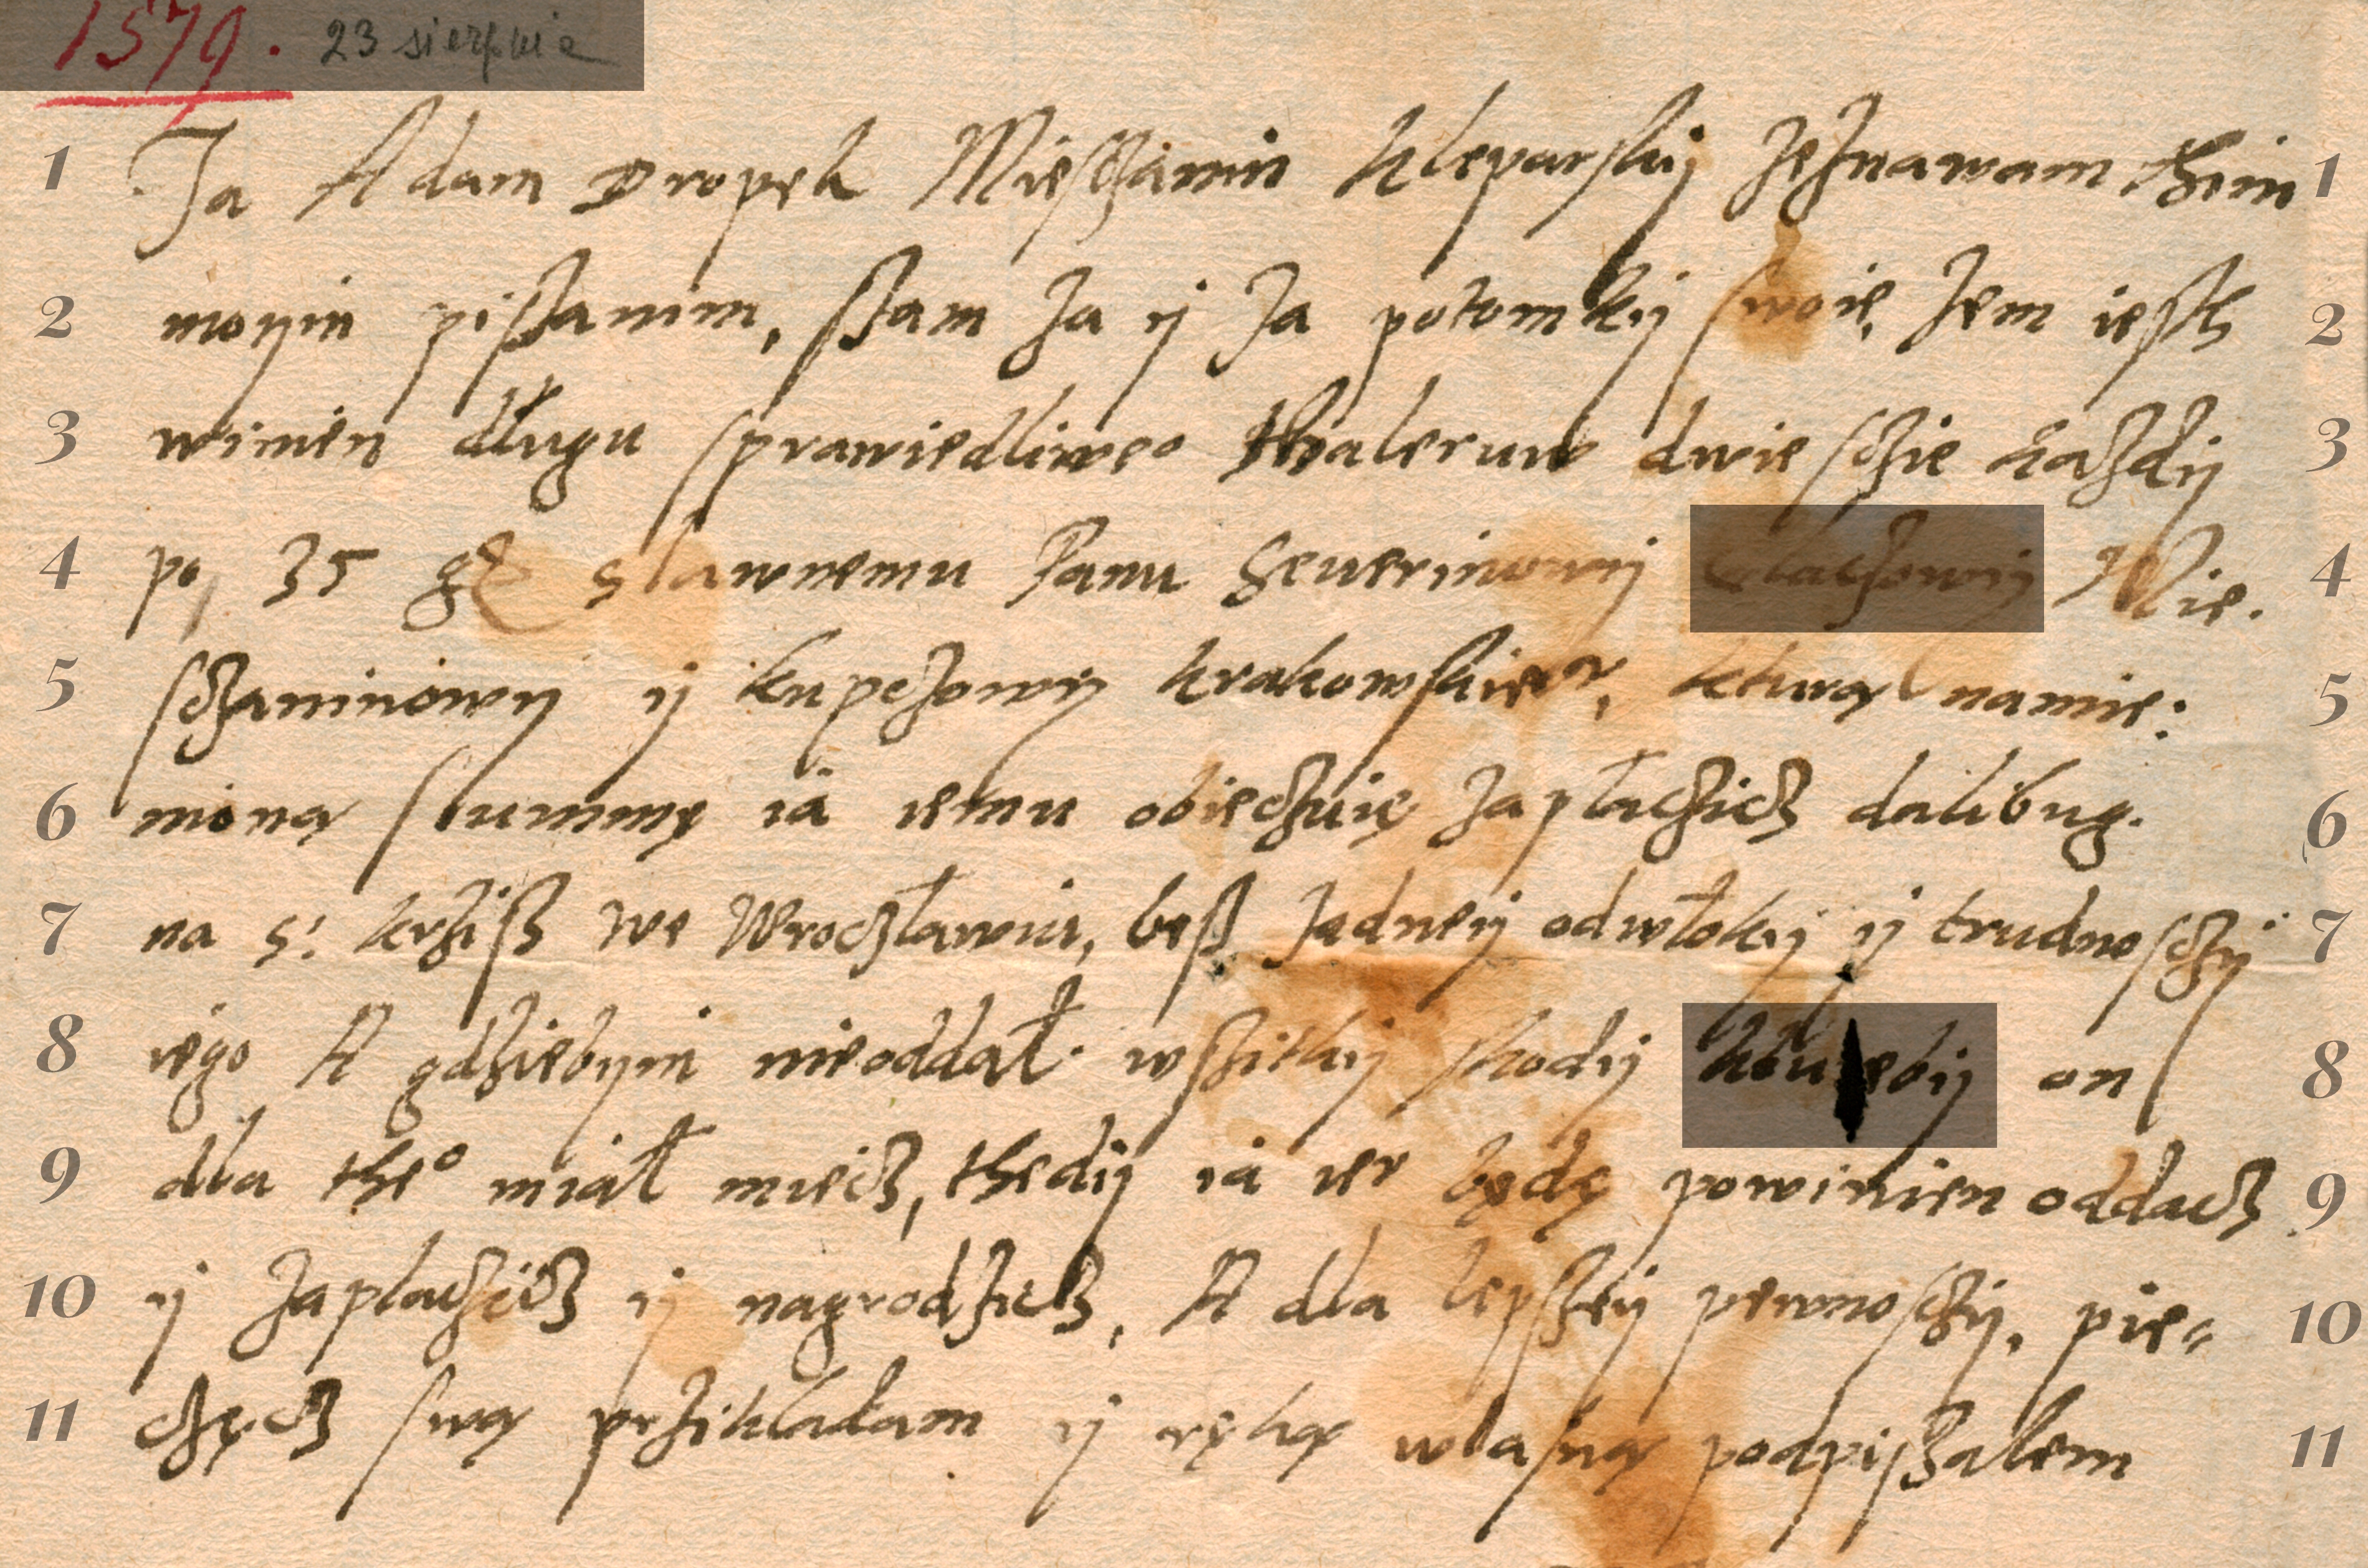 1579. 23 sierpnia
1 Ja Adam Dropek Miesczanin kleparskij zeznawam thim 1
2 moyim pissanim, ssam za ij za potomkij swoie, zem iesth 2
3 winien długu sprawiedliweo thaleruw dwiesczie kazdij 3
4 po 35 gr slawnemu Panu Seuerinowij Mie. 4
5 sczaninowij ij kupczowij krakowskiemr, kturą namie: 5
6 nioną summę ia iemu obieczuię zapłaczicz dalibug. 6
7 na s: krziss we Wroczławiu, bess zadneij odwłokij ij trudnosczij 7
8 iego A gdziebym nieoddał wszitkij skodij on 8
9 dla the° miał miecz, thedij ia ier będę powinien oddacz 9
10 ij zaplaczicz ij nagrodzicz, A dla lepszeij pewnosczij, pie= 10
11 częcz swą przikładam ij ręką własną podpissalem 11